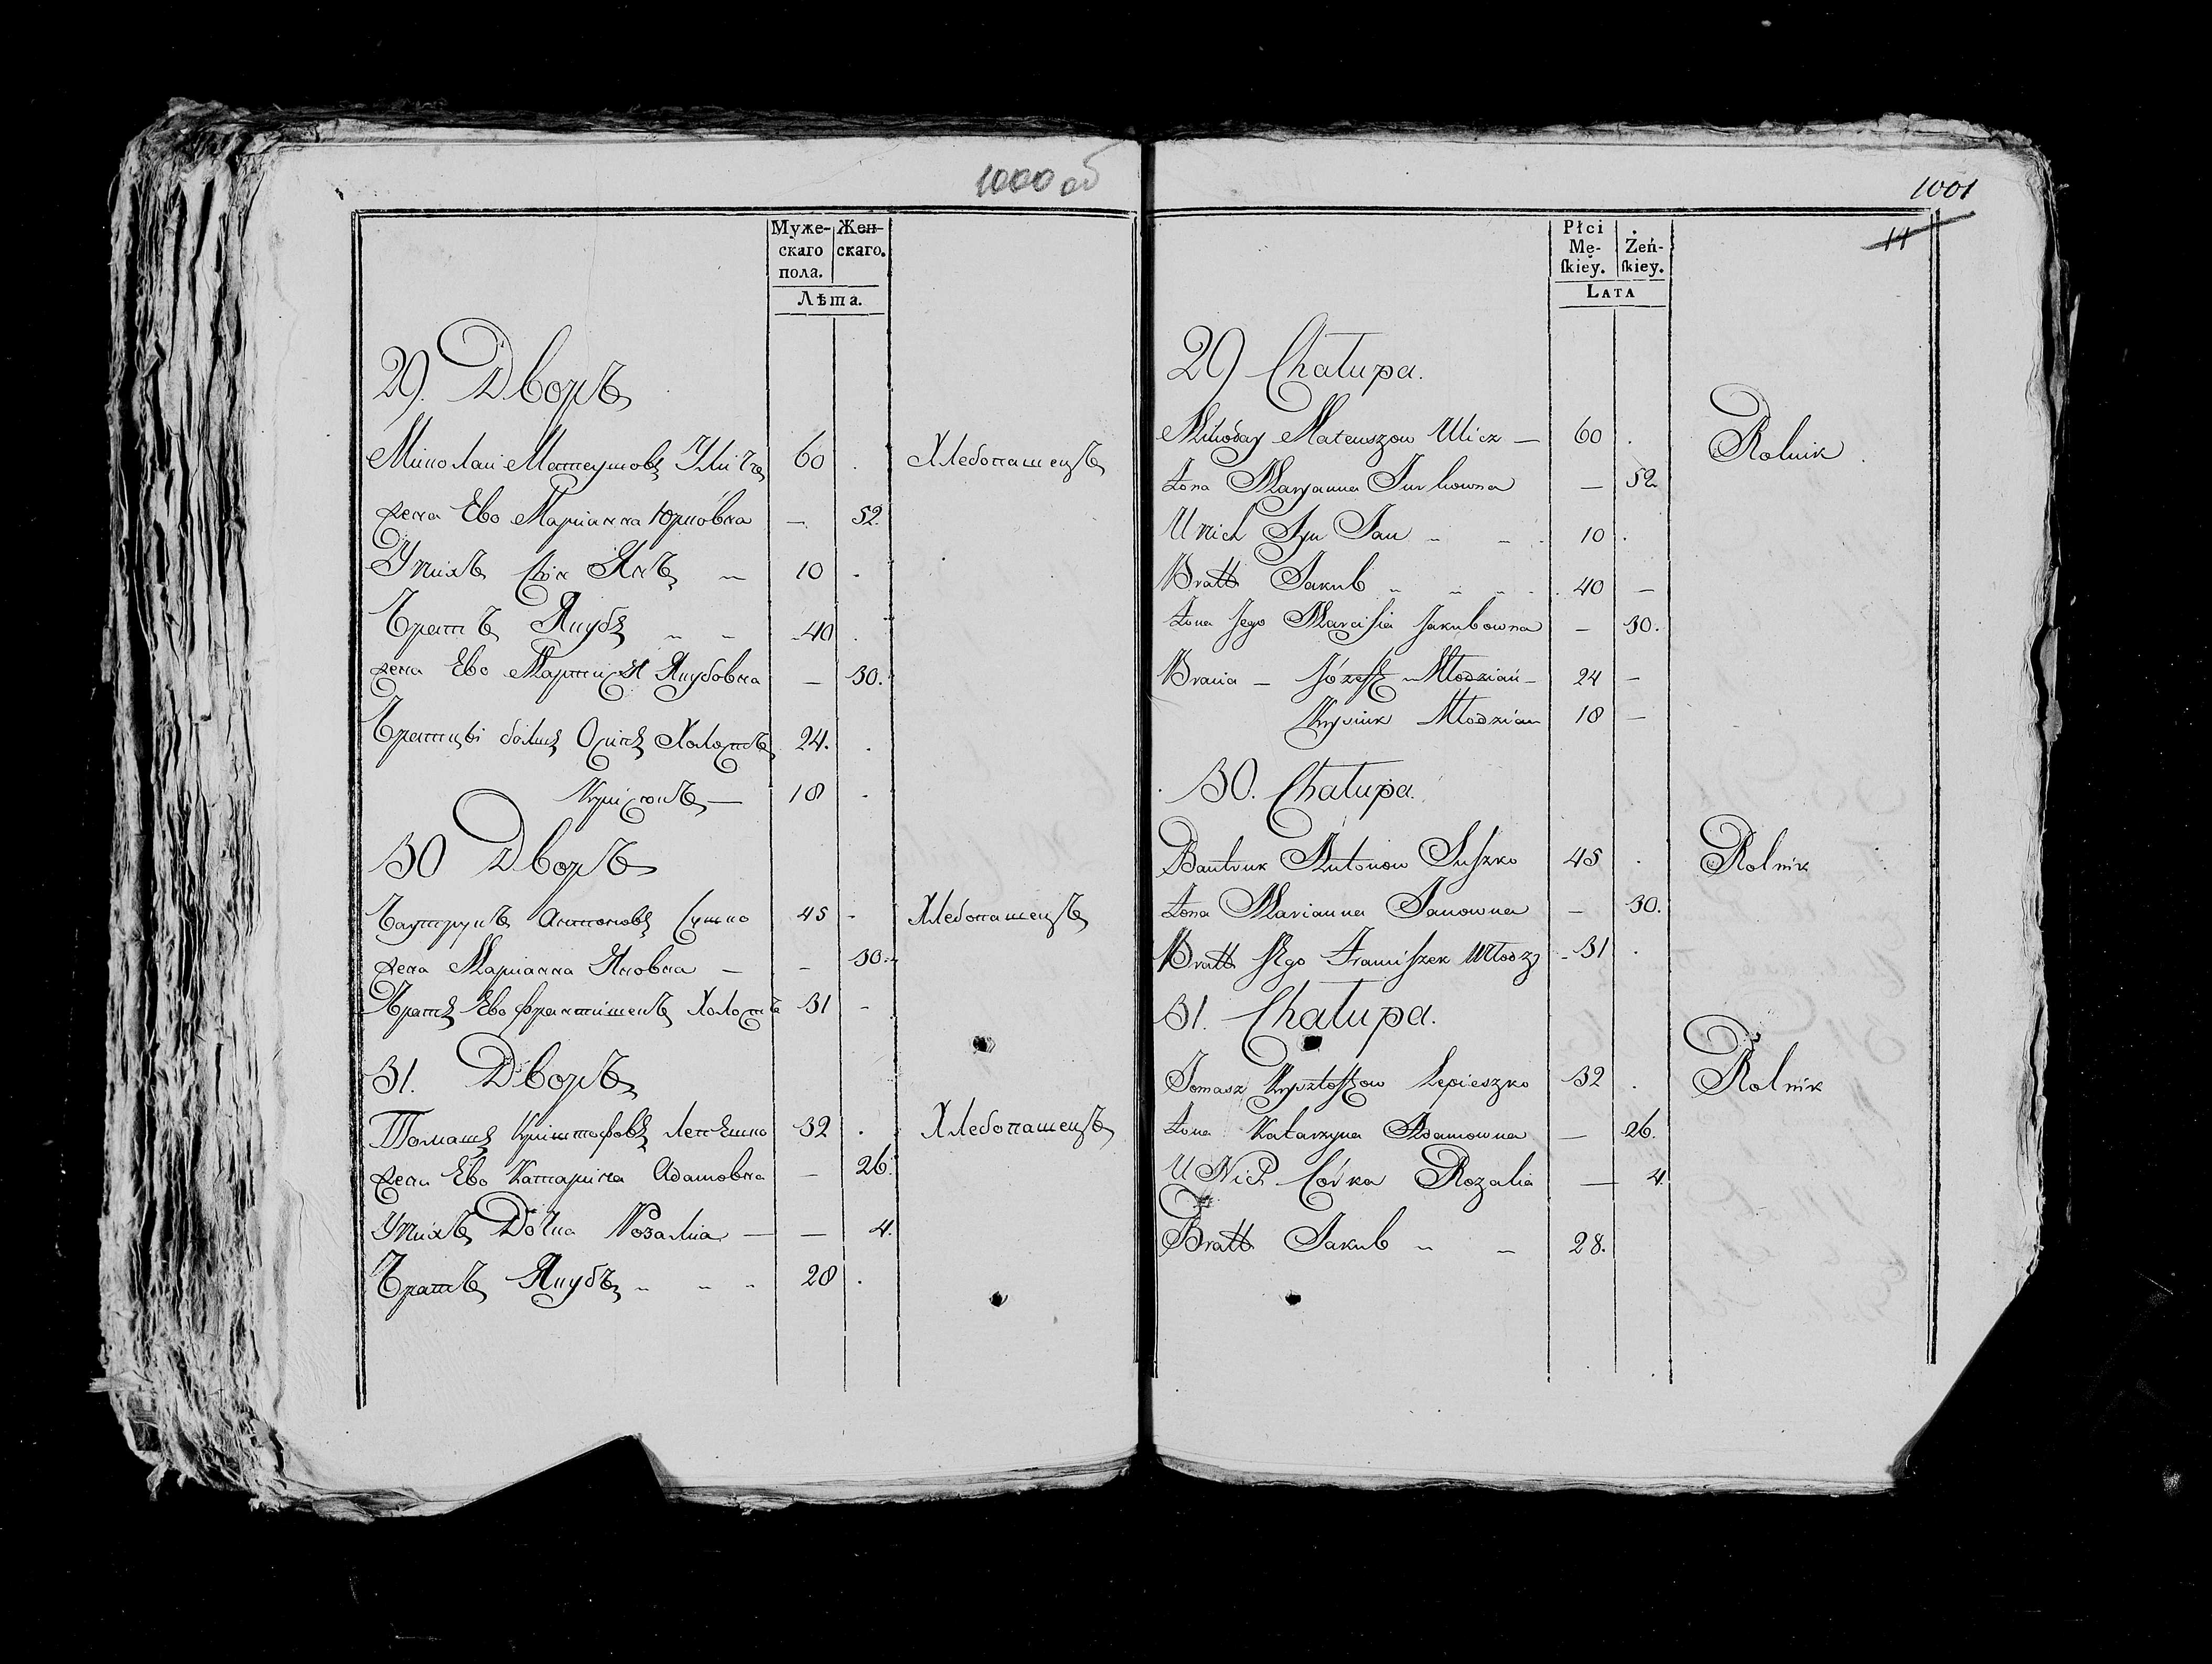 1000 об
Муже-
скаго
пола.
Жен-
скаго.
Лѣта.
29. Дворъ
Миколай Матеушовъ Уличъ 60 . Хлебопашецъ
жена Ево Марiанна Юрковна — 52.
У нихъ Сiн Янъ 10 .
Братъ Якубъ 40 .
жена Ево Якубовна — 30.
Осипъ Холостъ 24. .
18 -
30 Дворъ
Баутрукъ Антоновъ Сушко 45 - Хлебопашецъ
жена Марiанна Яновна — - 30.
Братъ Ево Франтишекъ Холостъ 31 -
31. Дворъ
Томашъ Криштофовъ Лепешко 32 . Хлебопашецъ
жена Ево Катарiна Адамовна — 26.
У нихъ Дочка Розалiа — — 4.
Братъ Якубъ 28 .
1001
11
Płci
Mę-
ſkiey.
Żeń-
ſkiey.
LATA
29 Chałupa.
Mikołay Mateuszow Ulicz — 60 . Rolnik
Żona Maryanna Jurkowna — 52
U nich Syn Jan 10 .
Bratt Jakub 40 —
Żona Jego Jakubowna — 30.
Bracia — Józeff Młodzian — 24 —
Młodzian 18 —
30. Chałupa.
Bautruk Antonow Suszko 45 . Rolnik
Żona Marianna Janowna — 30.
Bratt Jego Franciszek Młodz 31 .
31. Chałupa.
Tomasz Krysztoffow Lepieszko 32 . Rolnik
Żona Katarzyna Adamowna — 26.
U Nich Córka Rozalia — 4.
Bratt Jakub 28.